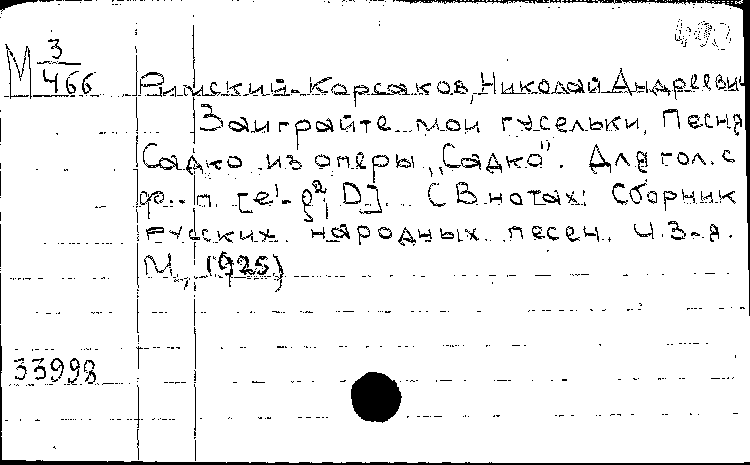 М 3/466
Римский-Корсаков, Николай Андреевич
Заиграйте мои гусельки. Песня
Садко из оперы „Садко". Для гол. с
ф.-п. [e¹-g², D]. (В нотах: Сборник
русских народных песен. ч. 3-я.
М., 1925)
33998